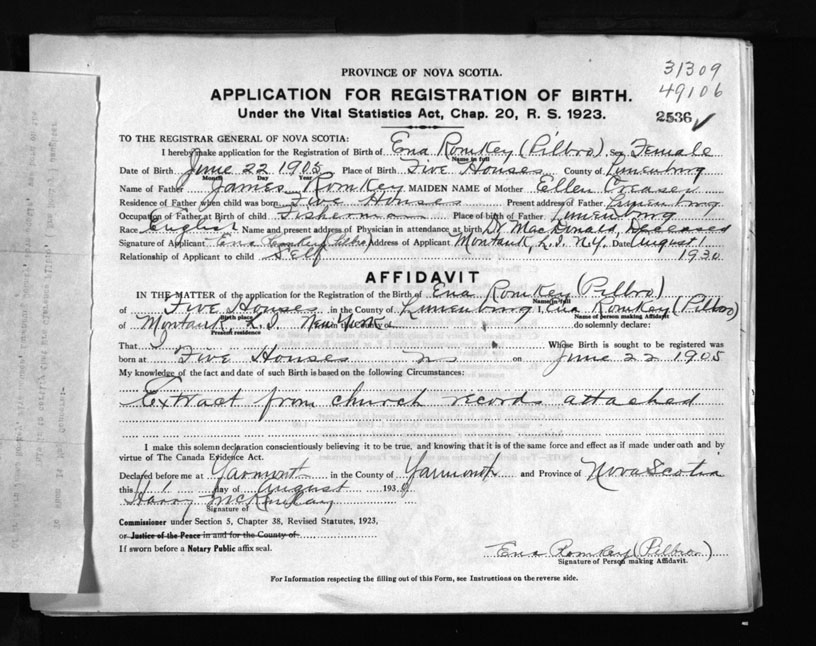 PROVINCE OF NOVA SCOTIA.
31309
49106
APPLICATION FOR REGISTRATION OF BIRTH.
2536
Under the Vital Statistics Act, Chap. 20, R. S. 1923.
TO THE REGISTRAR GENERAL OF NOVA SCOTIA:
I hereby make application for the Registration of Birth of Ena Romkey (Pilbro) Sex Female
Name in full
Date of Birth June 22 1905 Place of Birth Five Houses County of Lunenburg
Month Day Year
Name of Father James Romkey MAIDEN NAME of Mother Ellen Creaser
Residence of Father when child was born Five Houses Present address of Father Lunenburg
Occupation of Father at Birth of child Fisherman Place of birth of Father Lunenburg
Race English Name and present address of Physician in attendance at birth Dr MacDonald, Deceased
Signature of Applicant Ena Romkey (Pilbro) Address of Applicant Montauk, L.I. N.Y. Date August 1
Relationship of Applicant to child Self 1930
AFFIDAVIT
IN THE MATTER of the application for the Registration of the Birth of Ena Romkey (Pilbro)
Name in full
of Five Houses in the County of Lunenburg I, Ena Romkey (Pilbro)
Birth place Name of person making Affidavit
of Montauk, L.I. New York do solemnly declare:
Present residence
That I Whose Birth is sought to be registered was
born at Five Houses NS on June 22 1905
My knowledge of the fact and date of such Birth is based on the following Circumstances:
Extract from church records attached
I make this solemn declaration conscientiously believing it to be true, and knowing that it is of the same force and effect as if made under oath and by
virtue of The Canada Evidence Act.
Declared before me at Yarmouth in the County of Yarmouth and Province of Nova Scotia
this 1 day of August 1930
Harry
Signature of
Commissioner under Section 5, Chapter 38, Revised Statutes, 1923,
or Justice of the Peace in and for the County of
If sworn before a Notary Public affix seal.
Ena Romkey (Pilbro)
Signature of Person making Affidavit.
For Information respecting the filling out of this Form, see Instructions on the reverse side.